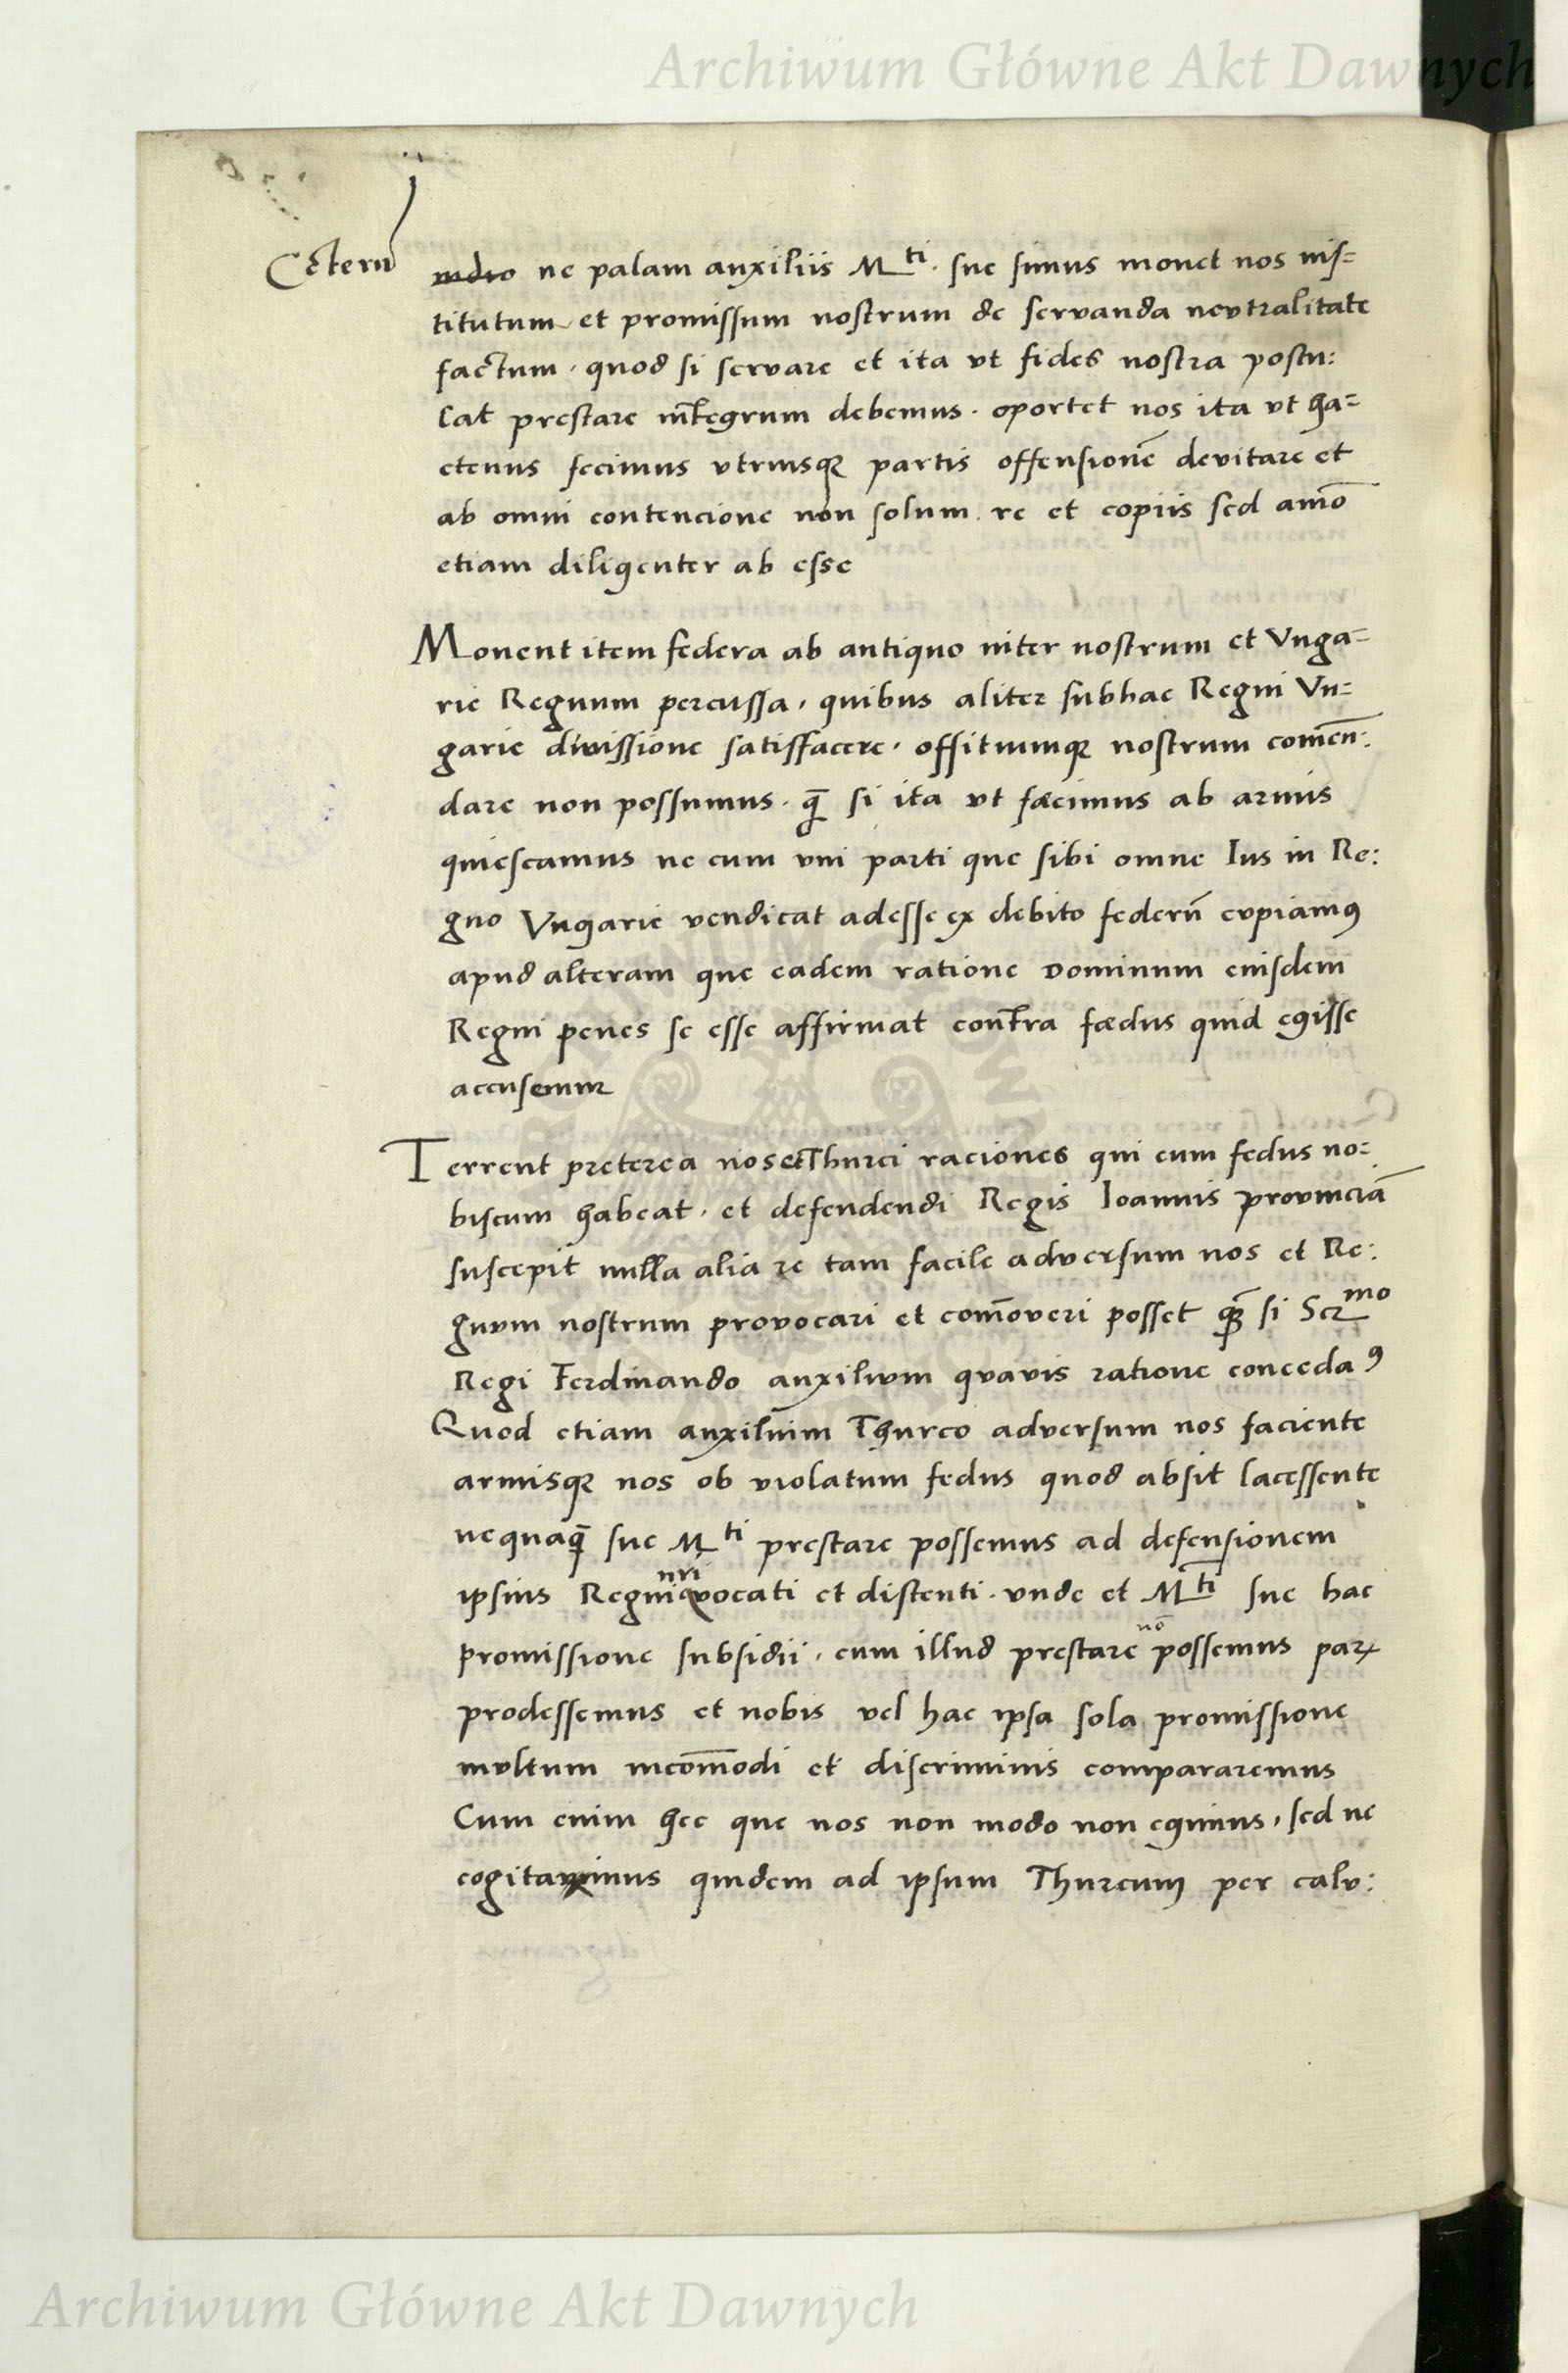 Archiwum Główne Akt Dawnych
Ceterū ne palam auxiliis M^ti. sue simus monet nos ins=
titutum et promissum nostrum de servanda nevtralitate
factum. quod si servare et ita vt fides nostra postu:
lat prestare integrum debemus. oportet nos ita vt ha=
ctenus fecimus vtriusqꝫ partis offensionē devitare et
ab omni contencione non solum re et copiis sed aīmo
etiam diligenter ab esse
Monent item federa ab antiquo inter nostrum et Vnga=
rie Regnum percussa, quibus aliter sub hac Regni Vn=
garie divissione satisfacere, offitiumqꝫ nostrum comēn:
dare non possumus. q̄ si ita vt fæcimus ab armis
quiescamus ne cum vni parti que sibi omne Ius in Re:
gno Vngarie vendicat adesse ex debito federū cupiamꝰ
apud alteram que eadem ratione dominium eiusdem
Regni penes se esse affirmat contra fædus quid egisse
accusemur
Terrent preterea nos et Thurci raciones qui cum fedus no:
biscum habeat, et defendendi Regis Ioannis provinciā
suscepit nulla alia re tam facile adversum nos et Re:
gnvm nostrum provocari et com̄overi posset qꝫ̄ si Ser^mo
Regi Ferdinando auxilivm qvavis ratione concedaꝰ
Quod etiam auxilium Thurco adversum nos faciente
armisqꝫ nos ob violatum fedus quod absit lacessente
nequaq̄ sue M^ti prestare possemus ad defensionem
ipsius Regni nri vocati et distenti. vnde et M^ti sue hac
promissione subsidii, cum illud prestare nō possemus parꝫ
prodessemus et nobis vel hac ipsa sola promissione
mvltum incom̄odi et discriminis compararemus
Cum enim hec que nos non modo non egimus, sed ne
cogitavimus quidem ad ipsum Thurcum per calv:
Archiwum Główne Akt Dawnych